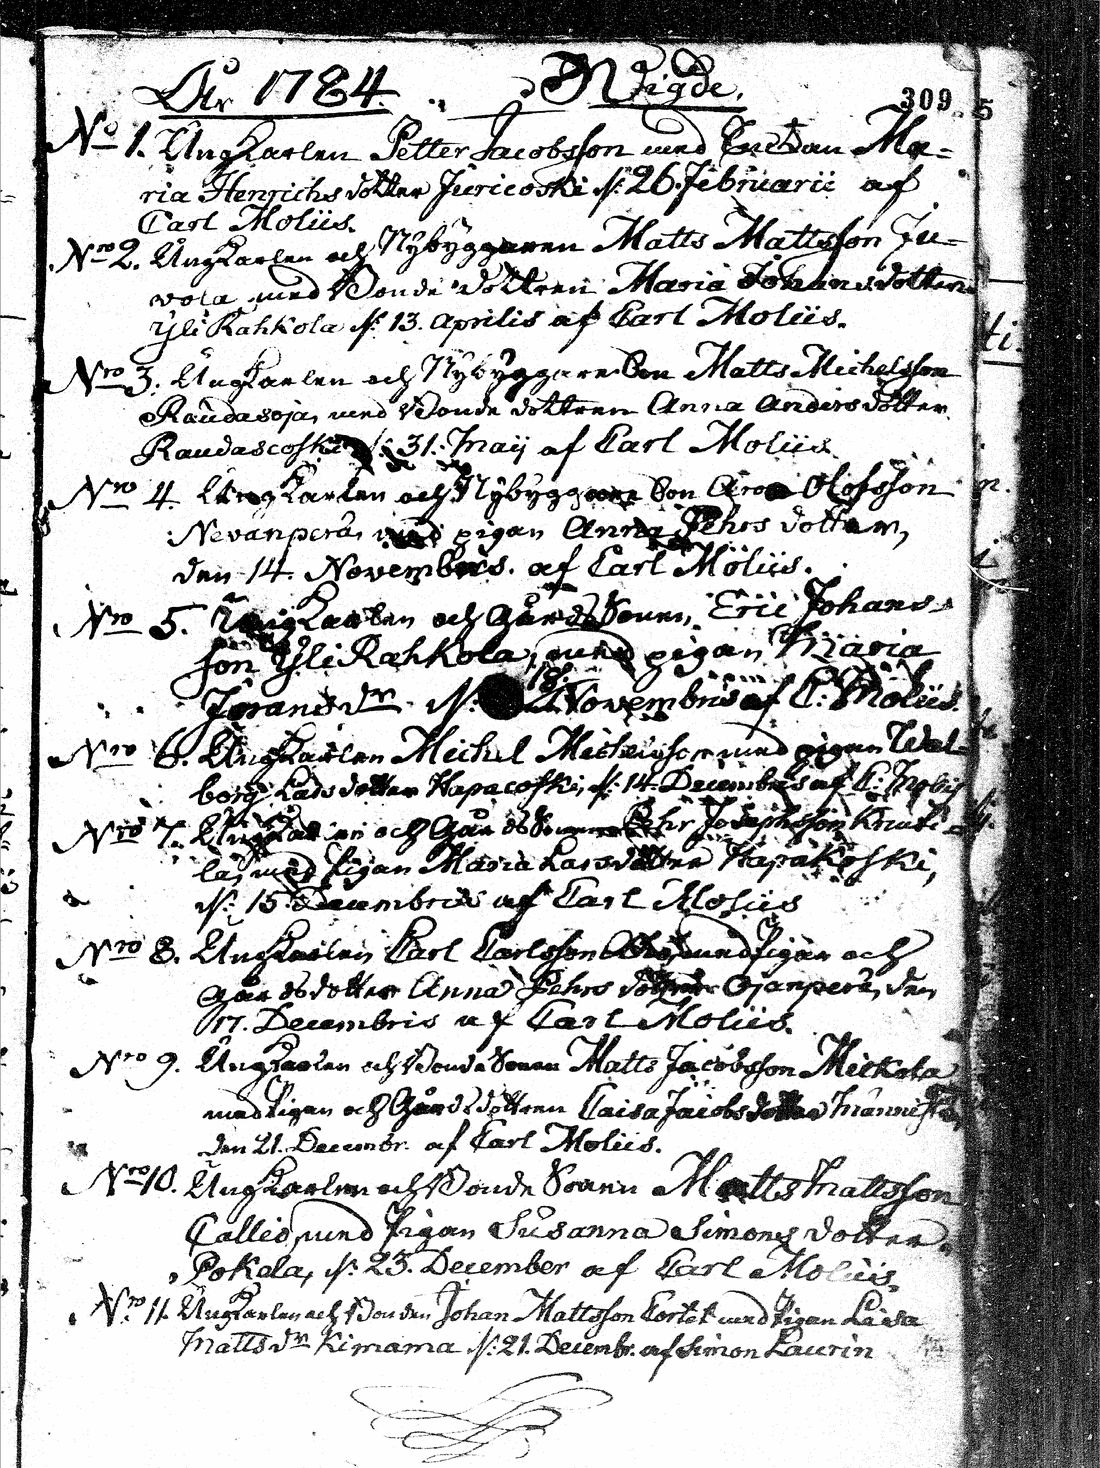 År 1784. Wigde. 309. 5
No 1. Ungkarlen Petter Jacobsson med Enckan Ma=
ria Henrichsdotter Juricoski d: 26. Februarii af
Carl Moliis.
Nro 2. Ungkarlen och Nybyggaren Matts Mattsson Ju=
vola med Bonde dottren Maria Johansdotter
Yli Rahkola d: 13. Aprilis af Carl Moliis.
Nro 3. Ungkarlen och Nybyggare Son Matts Michelsson
Raudasoja, med Bonde dottren Anna Andersdotter
Raudascoski d: 31. Maij af Carl Moliis
Nro 4. Ungkarlen och Nybyggare Son Aron Olofsson
Nevanperä, med pigan Anna Pehrs dotter,
den 14. Novembris. af Carl Moliis.
Nro 5. Ungkarlen och Gårds Sonen, Eric Johans-
son Yli Rahkola, med pigan Maria
Jörans dr d: 18. Novembris af C: Moliis.
Nro 6. Ungkarlen Michel Michelsson med pigan Wal-
borg Lars dotter Hapacoski, d: 14. Decembris af C: Moliis
Nro 7. Ungkarlen och Gårds Sonen Pehr Josephsson Knuti-
la, med Pigan Maria Larsdotter Hapakoski,
d: 15. Decembris af Carl Moliis
Nro 8. Ungkarlen Carl Carlsson med Pigan och
Gårdsdotter Anna Pehrs dotter Ojanperä, den
17. Decembris af Carl Moliis.
Nro 9. Ungkarlen och Bonde Sonen Matts Jacobsson Mickola
med Pigan och Gårds dottren Caisa Jacobsdotter
den 21. Decembr. af Carl Moliis.
Nro 10. Ungkarlen och Bonde Sonen Matts Mattsson
Callio, med Pigan Susanna Simons dotter
Pokela, d: 23. December af Carl Moliis,
Nro 11. Ungkarlen och Bonden Johan Mattsson med Pigan Lisa
Matts dr Kimama d: 21. Decembr. af Simon Laurin